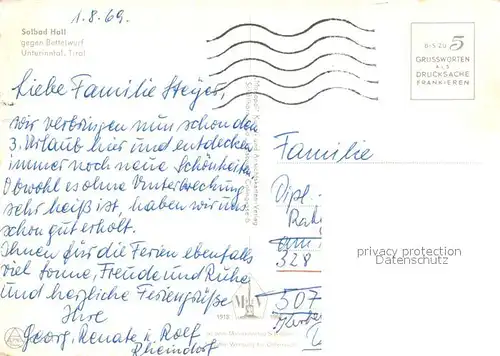 1.8.69.
Solbad Hall
gegen Bettelwurf
Unterinntal, Tirol
BIS ZU 5
GRUSSWORTEN
ALS
DRUCKSACHE
FRANKIEREN
Liebe Familie Steyer,
wir verbringen nun schon den
3. Urlaub hier und entdecken
immer noch neue Schönheiten
Obwohl es ohne Unterbrechung
sehr heiß ist, haben wir uns
schon gut erholt.
Ihnen für die Ferien ebenfalls
viel Sonne, Freude und Ruhe
und herzliche Feriengrüße
Ihre
Georg, Renate u. Rolf
Rheindorf
Familie
Dipl.-
am
328
507
privacy protection
Datenschutz